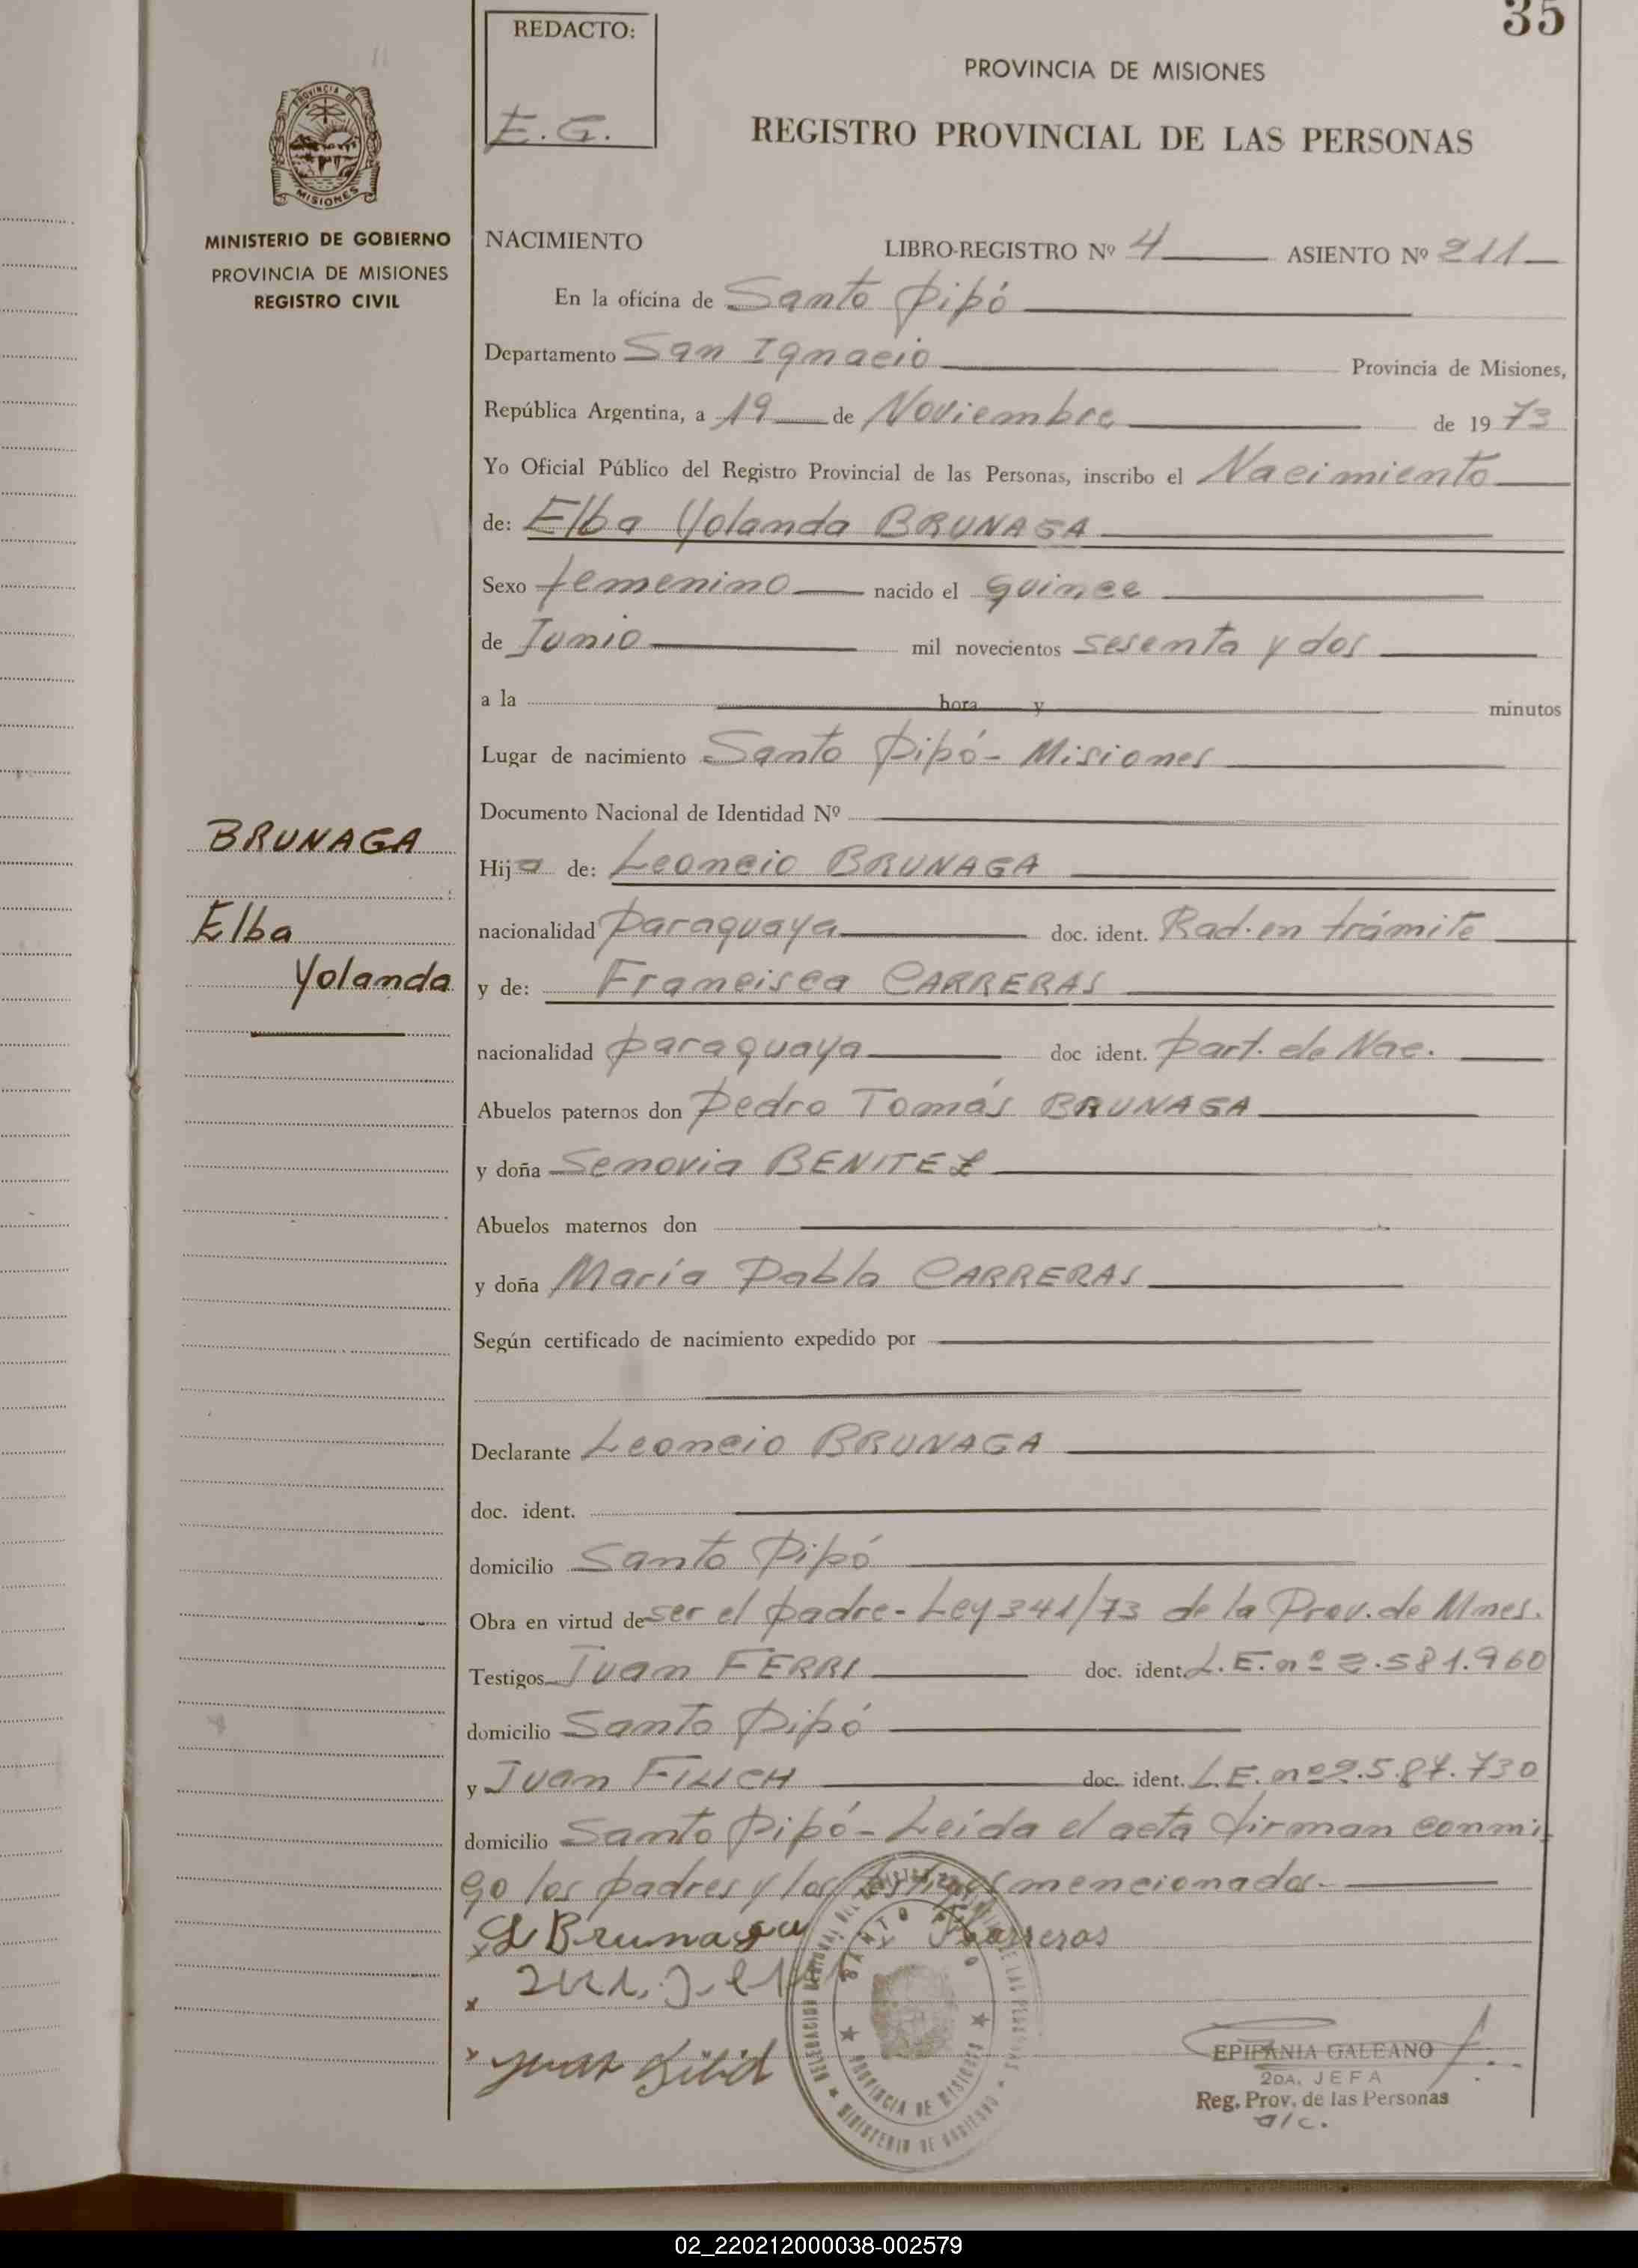 35
REDACTO:
E.G.
PROVINCIA DE MISIONES
REGISTRO PROVINCIAL DE LAS PERSONAS
PROVINCIA DE
MISIONES
MINISTERIO DE GOBIERNO
PROVINCIA DE MISIONES
REGISTRO CIVIL
NACIMIENTO LIBRO-REGISTRO Nº 4 ASIENTO Nº 211
En la oficina de Santo Pipó
Departamento San Ignacio Provincia de Misiones,
República Argentina, a 19 de Noviembre de 1973
Yo Oficial Público del Registro Provincial de las Personas, inscribo el Nacimiento
de: Elba Yolanda BRUNAGA
Sexo femenino nacido el quince
de Junio mil novecientos sesenta y dos
a la hora y minutos
Lugar de nacimiento Santo Pipó - Misiones
Documento Nacional de Identidad Nº
BRUNAGA
Elba
Yolanda
Hija de: Leoncio BRUNAGA
nacionalidad paraguaya doc. ident. Rad. en trámite
y de: Francisca CARRERAS
nacionalidad paraguaya doc ident. Part. de Nac.
Abuelos paternos don Pedro Tomás BRUNAGA
y doña Senovia BENITEZ
Abuelos maternos don
y doña María Pabla CARRERAS
Según certificado de nacimiento expedido por
Declarante Leoncio BRUNAGA
doc. ident.
domicilio Santo Pipó
Obra en virtud de ser el padre - Ley 341/73 de la Prov. de Mnes.
Testigos Juan FERRI doc. ident. L.E. nº 2.581.960
domicilio Santo Pipó
y Juan FILICH doc. ident. L.E. nº 2.587.730
domicilio Santo Pipó - Leída el acta firman conmi-
go los padres y los testigos mencionados.
x L Brunaga Carreras
x
x Juan Filich
SANTO PIPO
PROVINCIA DE MISIONES
MINISTERIO DE GOBIERNO
EPIFANIA GALEANO
2DA. JEFA
Reg. Prov. de las Personas
a/c.
02_220212000038-002579